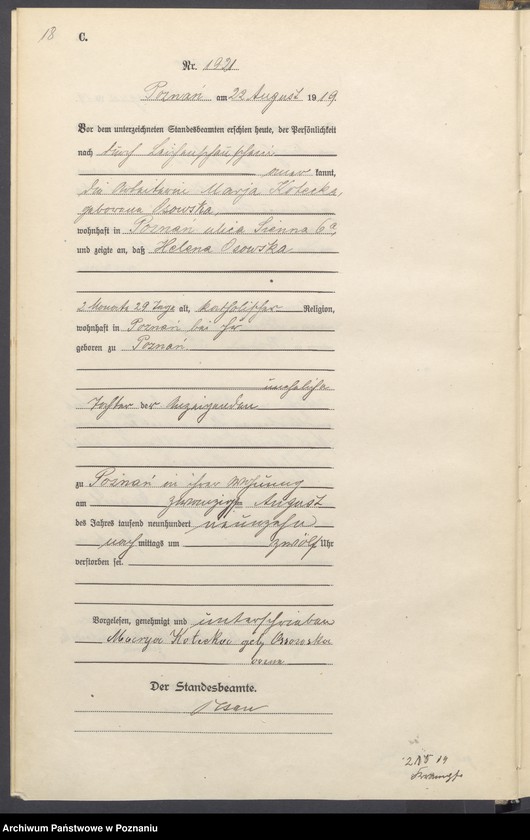 18 C.
Nr. 1921
Poznań am 22 August 1919.
Vor dem unterzeichneten Standesbeamten erschien heute, der Persönlichkeit
nach durch Leichenschauschein
aner kannt,
die Arbeiterin Marja Kotecka,
geborene Osowska,
wohnhaft in Poznań ulica Sienna 6a,
und zeigte an, daß Helena Osowska
2 Monate 29 Tage alt, katholischer Religion,
wohnhaft in Poznań bei ihr
geboren zu Poznań
uneheliche
Tochter der Anzeigenden
zu Poznań in ihrer Wohnung
am zwanzigsten August
des Jahres tausend neunhundert neunzehn
nach mittags um zwölf Uhr
verstorben sei.
Vorgelesen, genehmigt und unterschrieben
Marya Kotecka geb Ossowska
Der Standesbeamte.
Archiwum Państwowe w Poznaniu